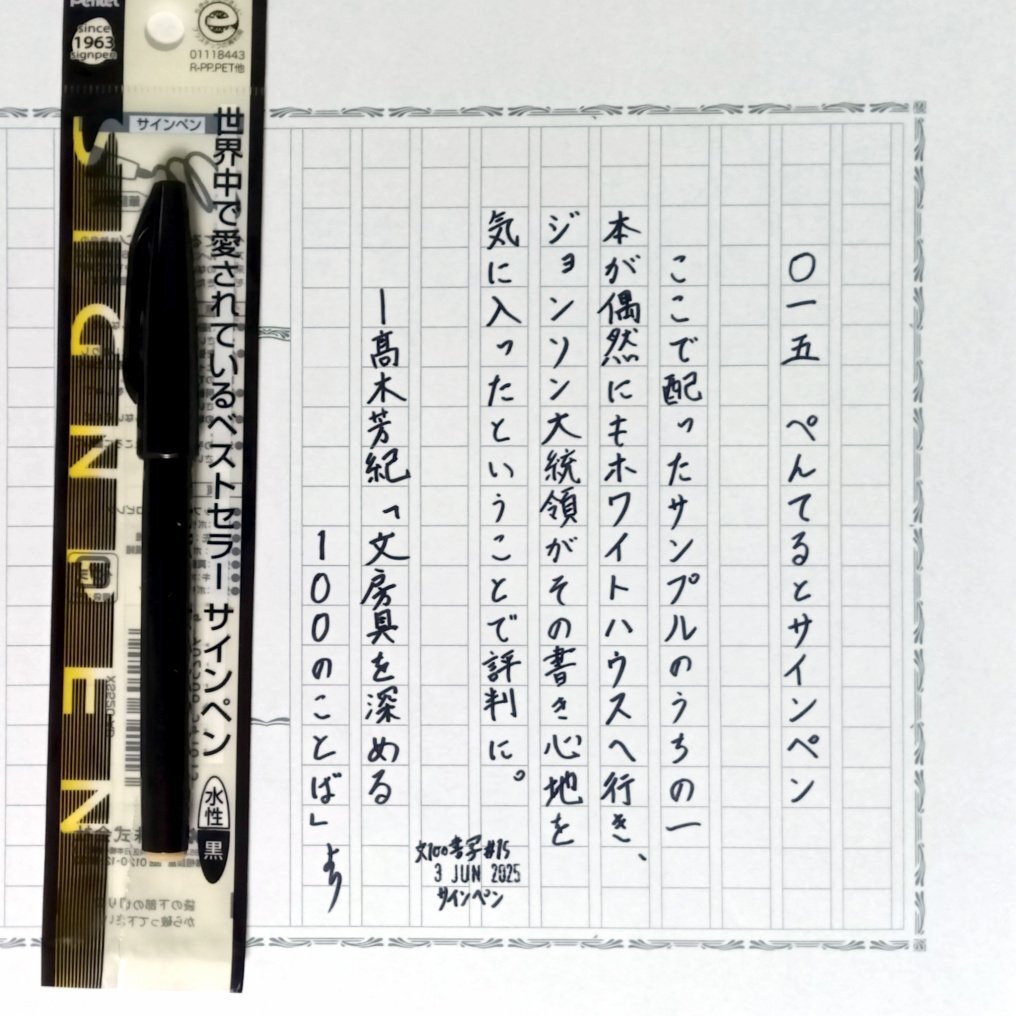 〇一五　ぺんてるとサインペン
ここで配ったサンプルのうちの一
本が偶然にもホワイトハウスへ行き、
ジョンソン大統領がその書き心地を
気に入ったということで評判に。
—髙木芳紀「文房具を深める
100のことば」
文100書写#15
3 JUN 2025
サインペン
Pentel
since
1963
signpen
01118443
R-PP.PET他
サインペン
世界中で愛されているベストセラー サインペン
水性
黒
SIGN PEN
袋の下部の切り
から破って下さい